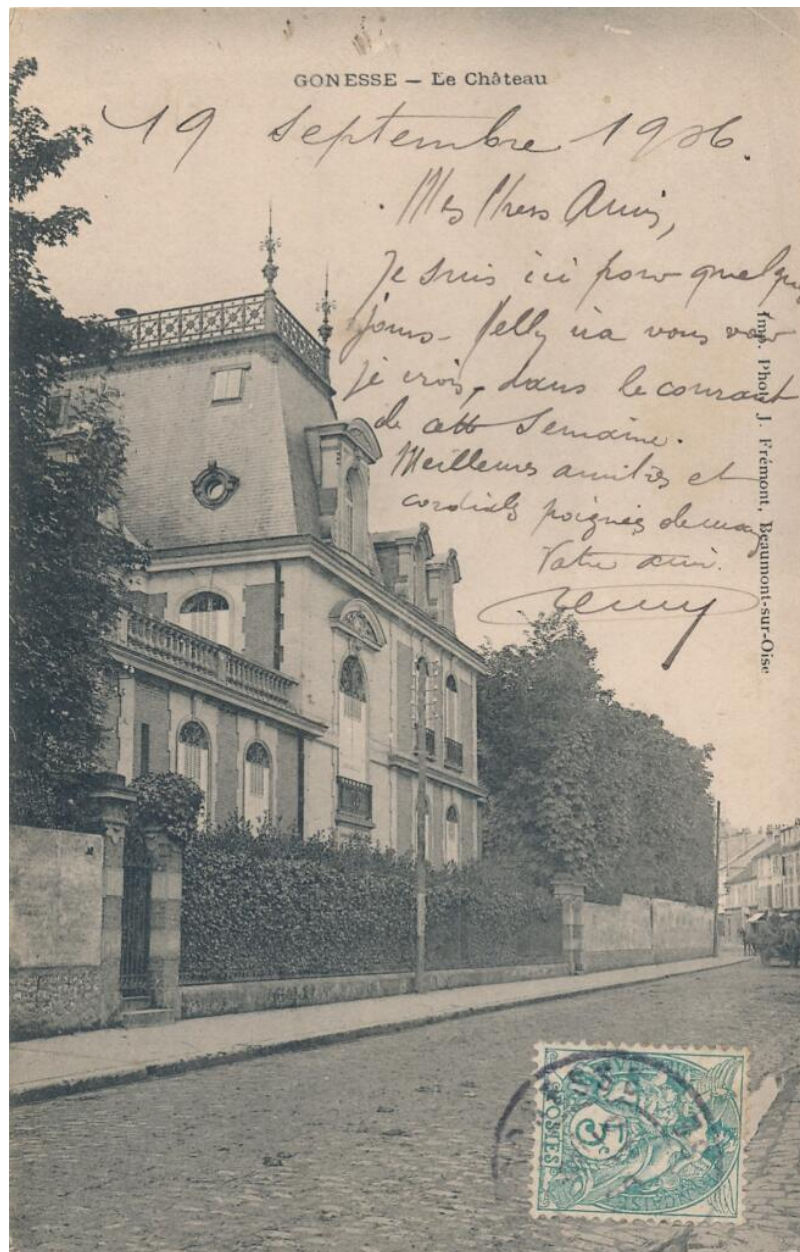 GONESSE — Le Château
19 Septembre 1906.
Mes Chers Amis,
Je suis ici pour quelques
jours - Nelly ira vous voir
je crois, dans le courant
de cette Semaine.
Meilleures amitiés et
cordiales poignées de main
Votre ami.
Imp. Phot. J. Frémont, Beaumont-sur-Oise
5c
POSTES